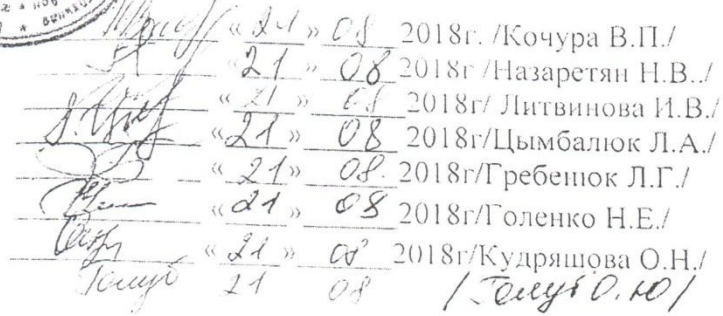 « 21 » 08 2018г. /Кочура В.П./
« 21 » 08 2018г /Назаретян Н.В../
« 21 » 08 2018г/ Литвинова И.В./
« 21 » 08 2018г/Цымбалюк Л.А./
« 21 » 08. 2018г/Гребенюк Л.Г./
« 21 » 08 2018г/Голенко Н.Е./
« 21 » 08 2018г/Кудряшова О.Н./
Голуб 21 08 / Голуб О.Ю /